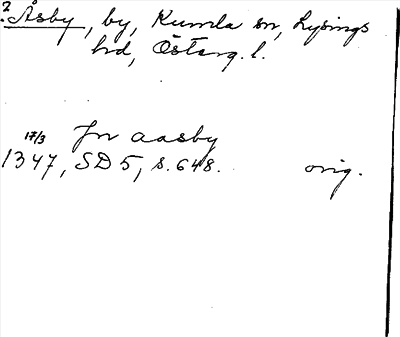 2. Åsby, by, Kumla sn, Lysings
hd, Österg. l.
Jn aasby
17/3
1347, SD 5, s. 648. orig.